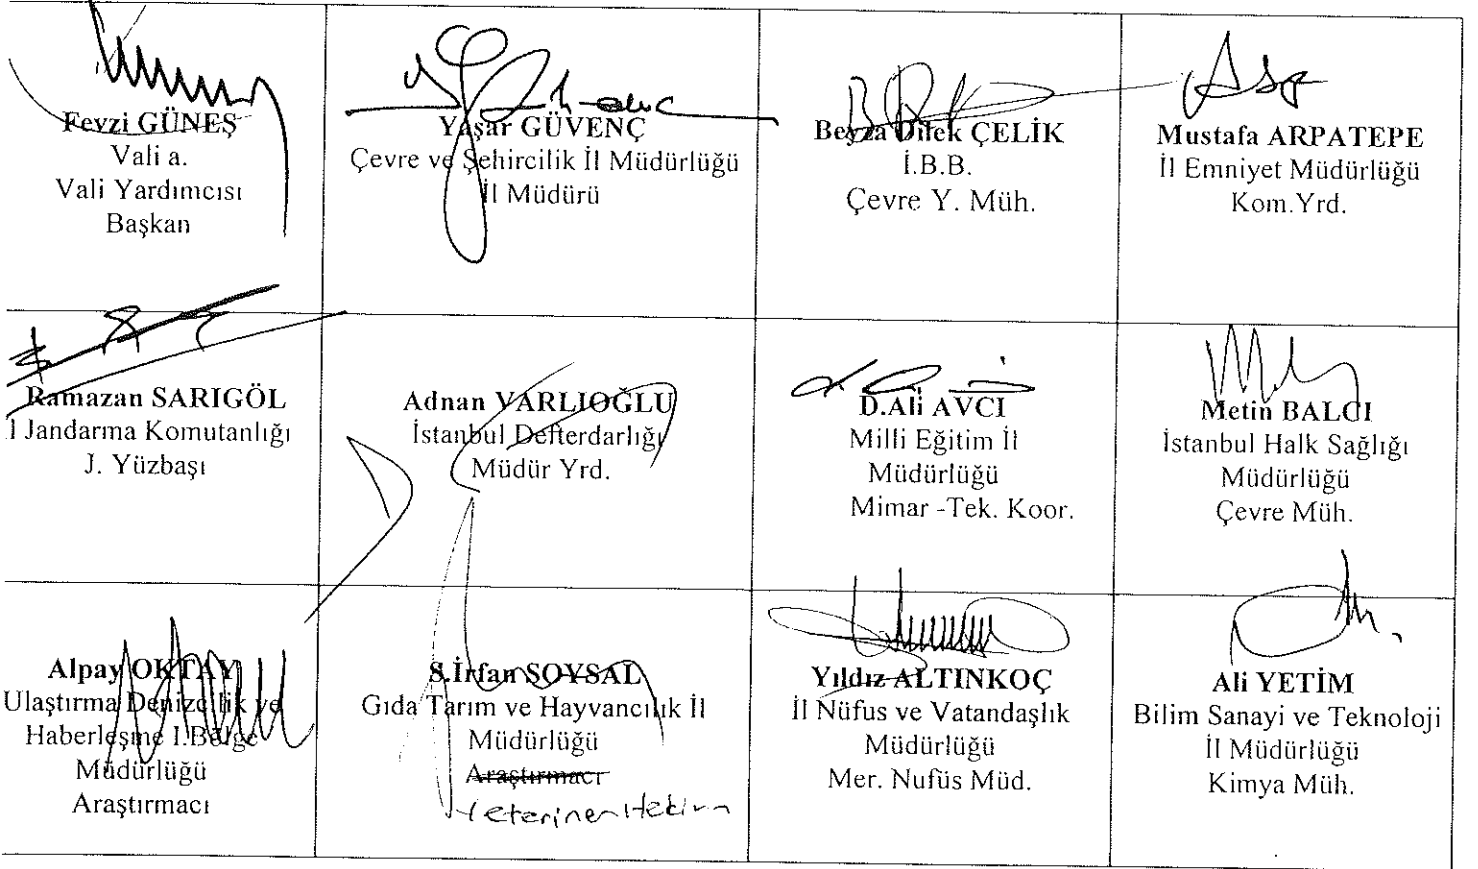 Fevzi GÜNEŞ
Vali a.
Vali Yardımcısı
Başkan
Yaşar GÜVENÇ
Çevre ve Şehircilik İl Müdürlüğü
İl Müdürü
Beyza Dilek ÇELİK
İ.B.B.
Çevre Y. Müh.
Mustafa ARPATEPE
İl Emniyet Müdürlüğü
Kom.Yrd.
Ramazan SARIGÖL
İl Jandarma Komutanlığı
J. Yüzbaşı
Adnan VARLIOĞLU
İstanbul Defterdarlığı
Müdür Yrd.
D.Ali AVCI
Milli Eğitim İl
Müdürlüğü
Mimar -Tek. Koor.
Metin BALCI
İstanbul Halk Sağlığı
Müdürlüğü
Çevre Müh.
Alpay OKTAY
Ulaştırma Denizcilik ve
Haberleşme I.Bölge
Müdürlüğü
Araştırmacı
S.İrfan SOYSAL
Gıda Tarım ve Hayvancılık İl
Müdürlüğü
Araştırmacı
Veteriner Hekim
Yıldız ALTINKOÇ
İl Nüfus ve Vatandaşlık
Müdürlüğü
Mer. Nufüs Müd.
Ali YETİM
Bilim Sanayi ve Teknoloji
İl Müdürlüğü
Kimya Müh.